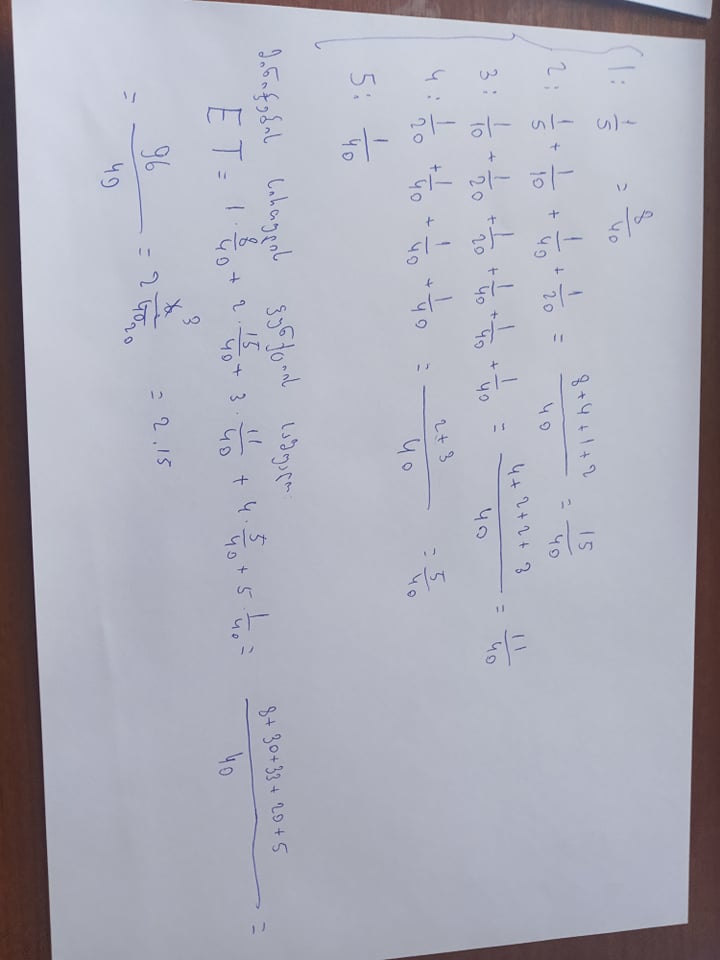 1: 1/5 = 8/40
2: 1/5 + 1/10 + 1/40 + 1/20 = 8+4+1+2/40 = 15/40
3: 1/10 + 1/20 + 1/20 + 1/40 + 1/40 + 1/40 = 4+2+2+3/40 = 11/40
4: 1/20 + 1/40 + 1/40 + 1/40 = 2+3/40 = 5/40
5: 1/40
ფუნქციის საშუალო
ET = 1 · 8/40 + 2 · 15/40 + 3 · 11/40 + 4 · 5/40 + 5 · 1/40 = 8+30+33+20+5/40 =
= 96/40 = 2 6/40 3/20 = 2.15